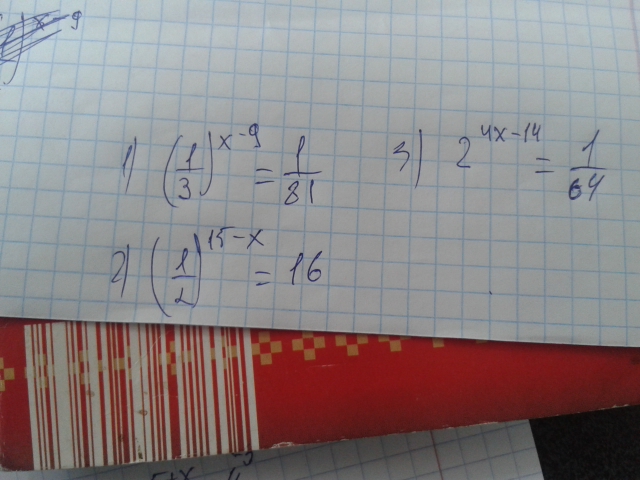 x-9
1) (1/3)^x-9 = 1/81
3) 2^4x-14 = 1/64
2) (1/2)^15-x = 16